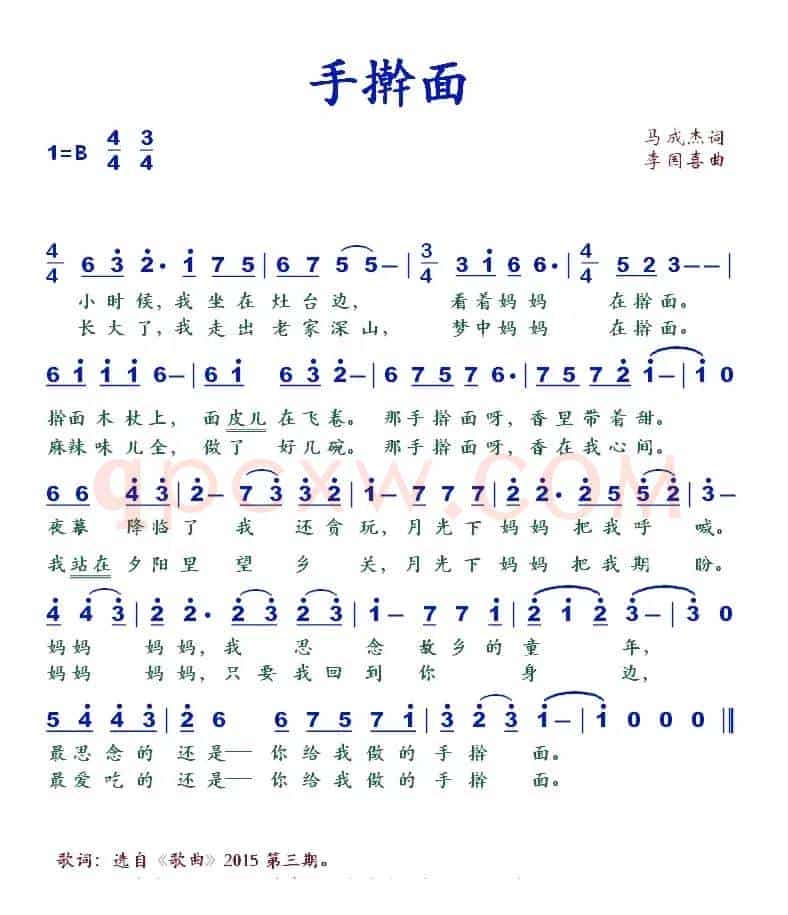 手擀面
1=B 4/4 3/4
马成杰词
李国喜曲
4/4 6 3 2· 1 7 5 | 6 7 5 5— | 3/4 3 1 6 6· | 4/4 5 2 3—— |
小时候，我坐在灶台边，看着妈妈在擀面。
长大了，我走出老家深山，梦中妈妈在擀面。
6 1 1 1 6— | 6 1 6 3 2— | 6 7 5 7 6· | 7 5 7 2 1— | 1 0
擀面木杖上，面皮儿在飞卷。那手擀面呀，香里带着甜。
麻辣味儿全，做了好几碗。那手擀面呀，香在我心间。
qpcxw.com
6 6 4 3 | 2— 7 3 3 2 | 1— 7 7 7 | 2 2· 2 5 5 2 | 3—
夜幕降临了我还贪玩，月光下妈妈把我呼喊。
我站在夕阳里望乡关，月光下妈妈把我期盼。
4 4 3 | 2 2· 2 3 2 3 | 1— 7 7 1 | 2 1 2 3— | 3 0
妈妈妈妈，我思念故乡的童年，
妈妈妈妈，只要我回到你身边，
5 4 4 3 | 2 6 6 7 5 7 1 | 3 2 3 1— | 1 0 0 0 ‖
最思念的还是——你给我做的手擀面。
最爱吃的还是——你给我做的手擀面。
歌词：选自《歌曲》2015第三期。